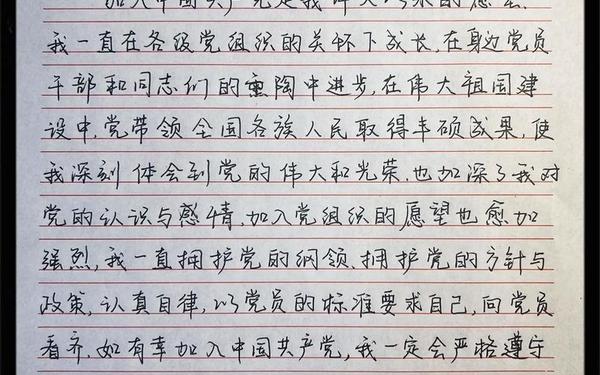 加入中国共产党是我
我一直在各级党组织的关怀下成长,在身边党员
干部和同志们的熏陶中进步,在伟大祖国建
设中,党带领全国各族人民取得丰硕成果,使
我深刻体会到党的伟大和光荣,也加深了我对
党的认识与感情,加入党组织的愿望也愈加
强烈,我一直拥护党的纲领、拥护党的方针与
政策,认真自律,以党员的标准要求自己,向党员
看齐.如有幸加入中国共产党,我一定会严格遵守